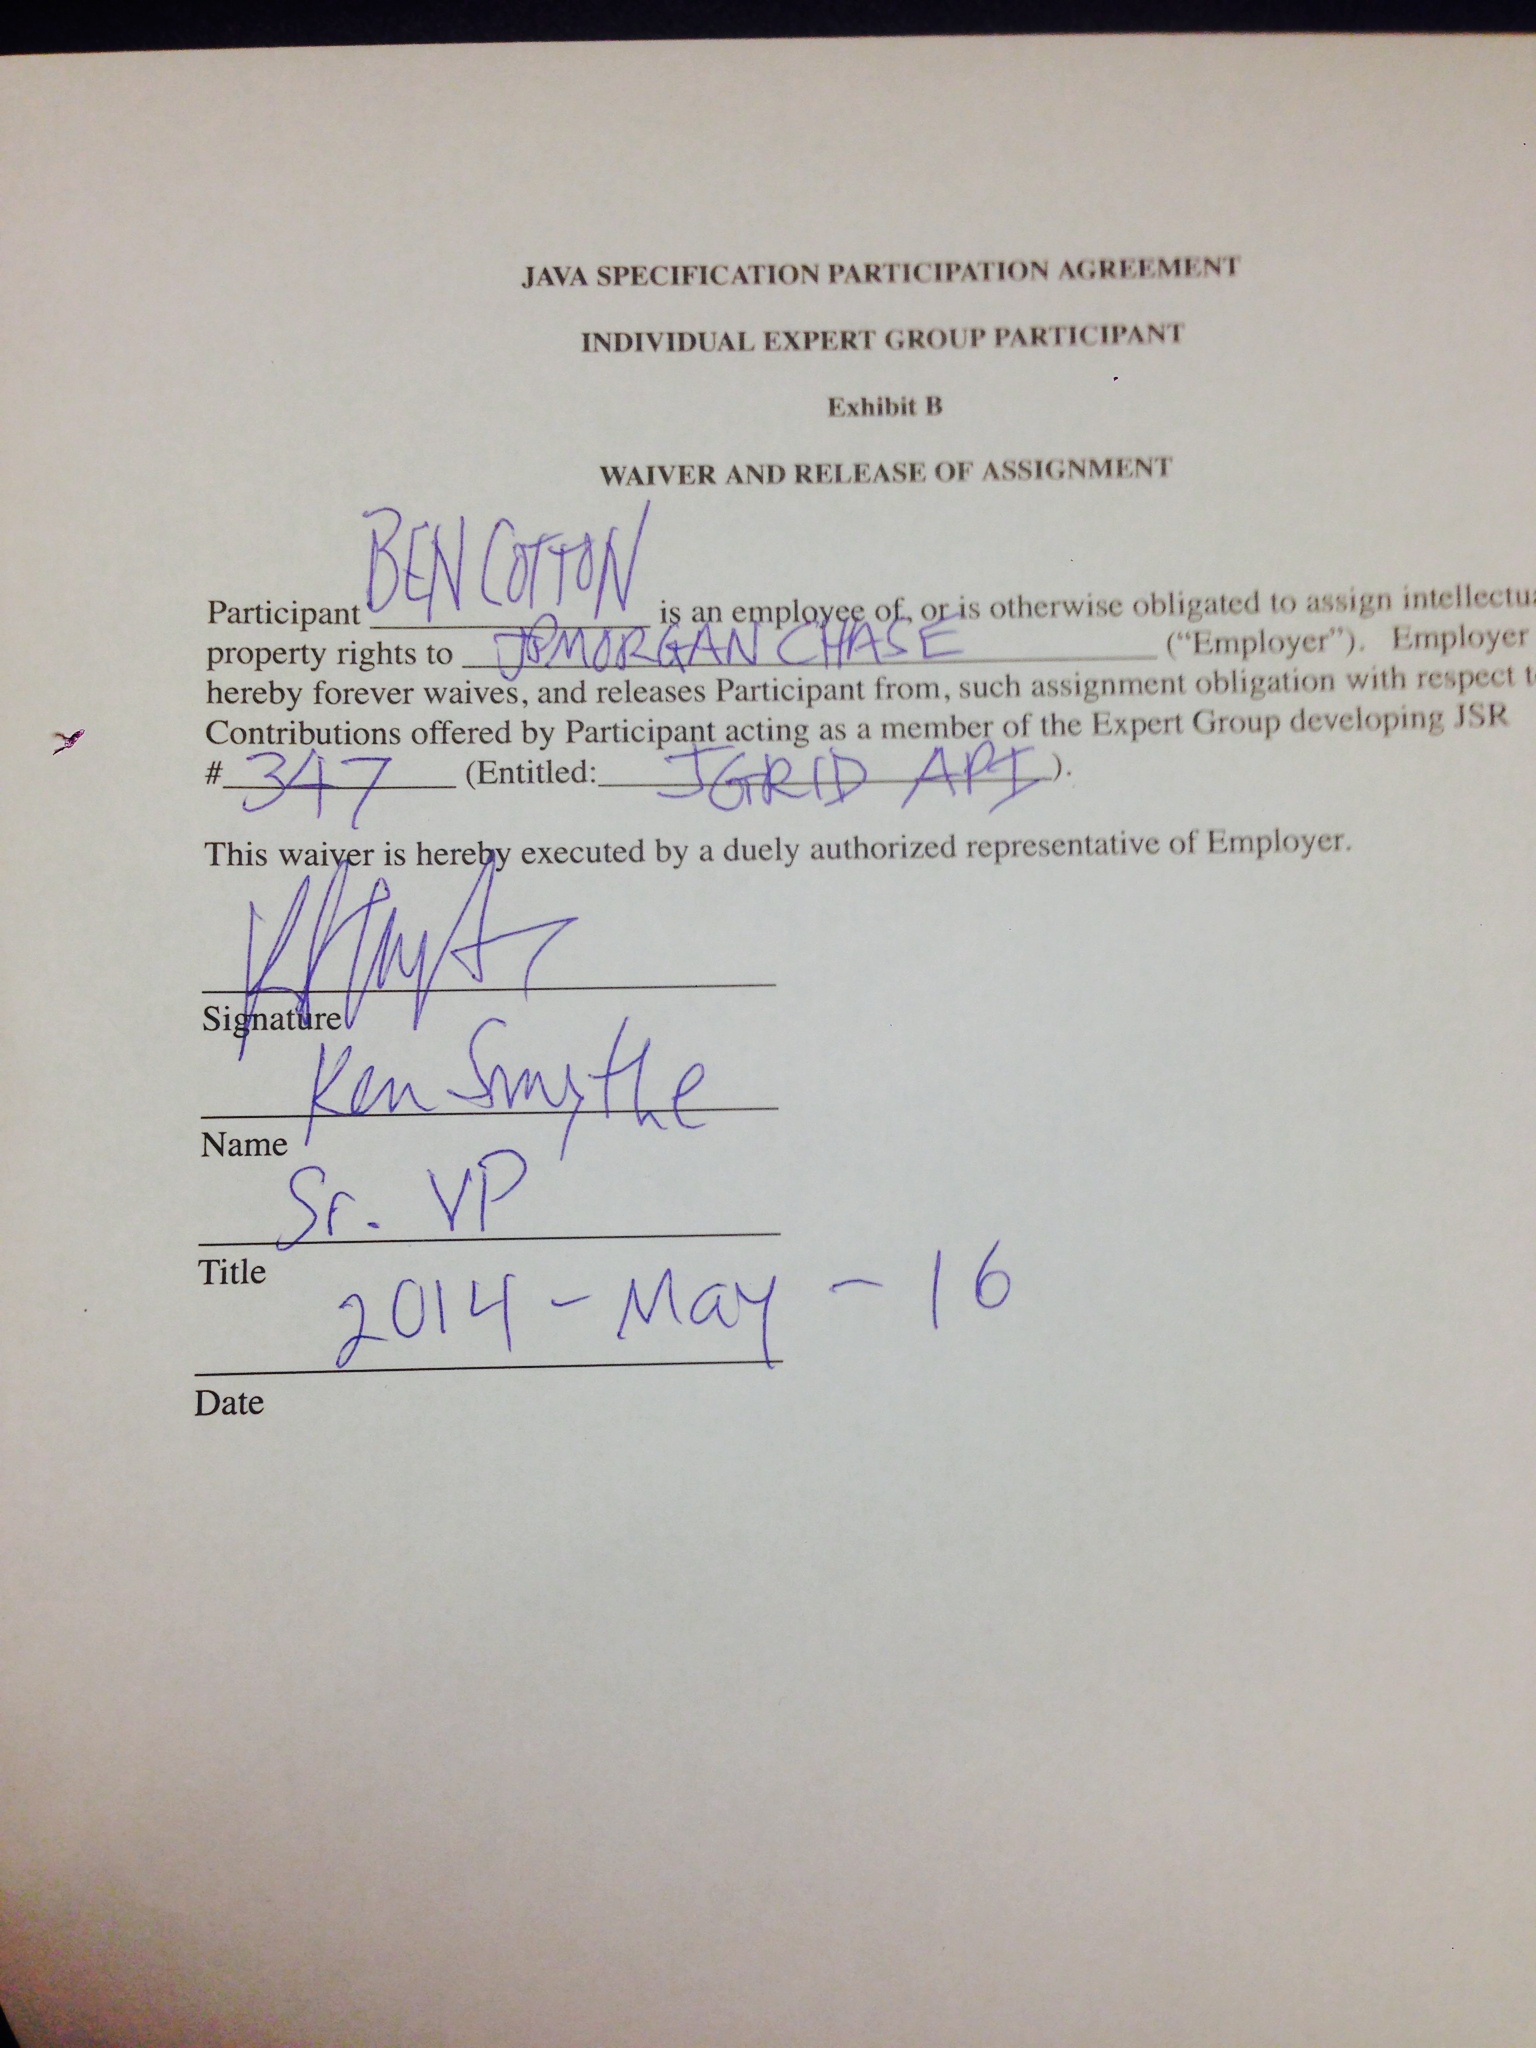 JAVA SPECIFICATION PARTICIPATION AGREEMENT
INDIVIDUAL EXPERT GROUP PARTICIPANT
Exhibit B
WAIVER AND RELEASE OF ASSIGNMENT
Participant BEN COTTON is an employee of, or is otherwise obligated to assign intellectua
property rights to JPMORGAN CHASE ("Employer"). Employer
hereby forever waives, and releases Participant from, such assignment obligation with respect t
Contributions offered by Participant acting as a member of the Expert Group developing JSR
# 347 (Entitled: JGRID API ).
This waiver is hereby executed by a duely authorized representative of Employer.
Signature
Ken Smythe
Name
Sr. VP
Title
2014 - May - 16
Date